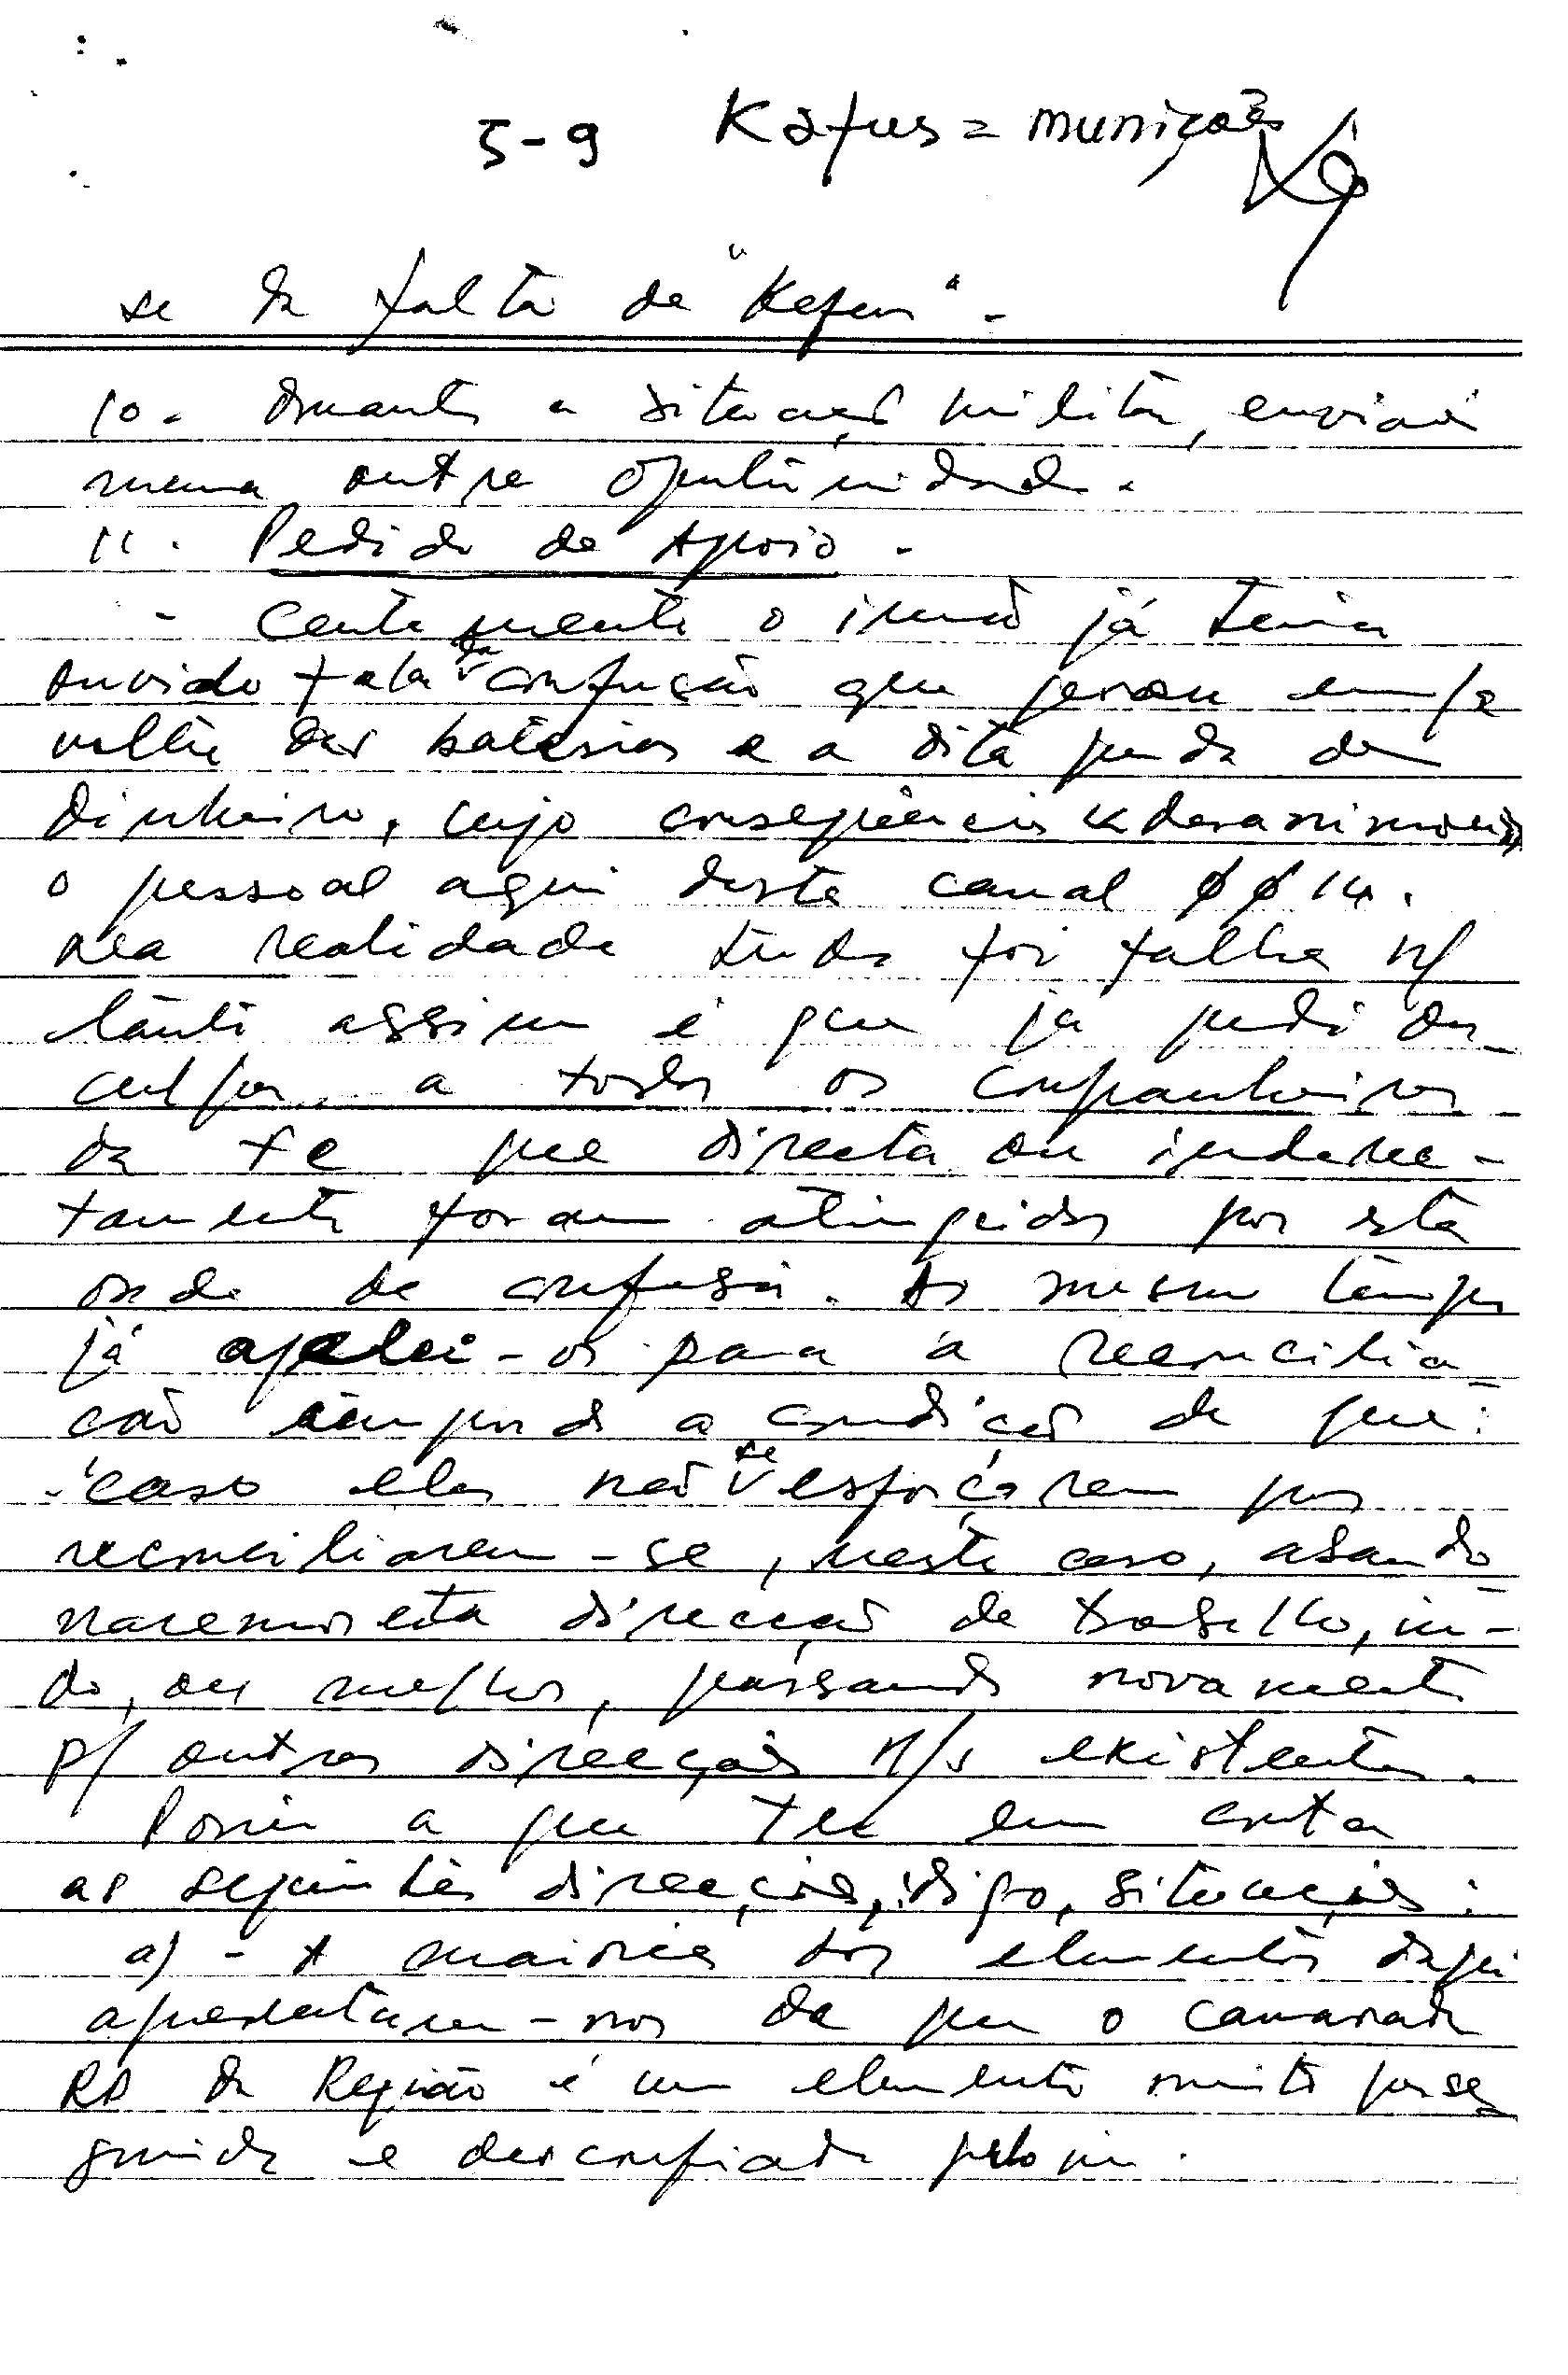 5-9 Kafus = munições
se da falta de "Kafus" -
10. Quanto a situação militar, enviarei
numa outra oportunidade.
11. Pedido de Apoio -
- Certamente o irmão já teria
ouvido falar da confusão que gerou em
volta das baterias e a dita perda de
dinheiro, cujo consequência «desanimou»
o pessoal aqui deste canal ØØ14.
Na realidade tudo foi falha n/
tanto assim é que já pedi des-
culpas a todos os companheiros
da fe que directa ou inderec-
tamente foram atingidos por esta
onda de confusão. Ao mesmo tempo
já apelei-os para a reconcilia-
ção impondo a condição de que:
- caso eles não se esforçarem por
reconciliarem-se, neste caso, abando
naremos esta direcção de trabalho, in-
do, ou melhor, passando novamente
p/ outras direcções n/s existentes.
Porém a que ter em conta
as seguintes direcções, digo, situações:
a) - A maioria dos elementos daqui
apresentaram-nos de que o camarada
RD da Região é um elemento muito perse
guido e desconfiado pelo in.